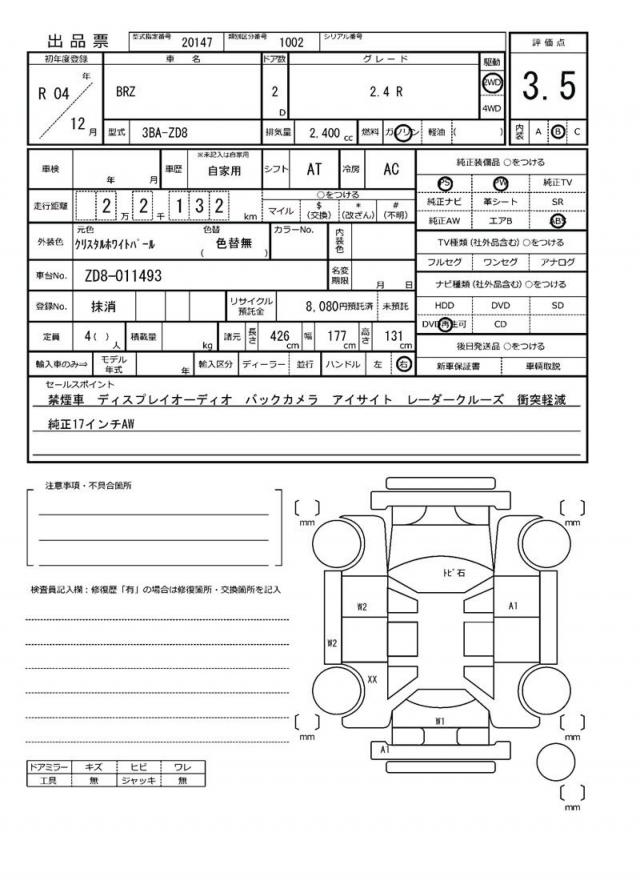 出品票 型式指定番号 20147 類別区分番号 1002 シリアル番号
初年度登録 車名 ドア数 グレード 駆動 評価点
R 04 年 12 月 BRZ 2 D 2.4 R 2WD 4WD 3.5
型式 3BA-ZD8 排気量 2,400 cc 燃料 ガソリン 軽油 ( ) 内装 A B C
車検 年 月 車歴 ※未記入は自家用 自家用 シフト AT 冷房 AC 純正装備品 ○をつける
PS PW 純正TV
走行距離 2 万 2 千 1 3 2 km ○をつける
マイル $ (交換) * (改ざん) # (不明)
純正ナビ 革シート SR
純正AW エアB ABS
外装色 元色 クリスタルホワイトパール 色替 ( 色替無 ) カラーNo. 内装色
TV種類 (社外品含む) ○をつける
フルセグ ワンセグ アナログ
車台No. ZD8-011493 名変期限 月 日
ナビ種類 (社外品含む) ○をつける
登録No. 抹消 リサイクル預託金 8,080円預託済 未預託
HDD DVD SD
DVD再生可 CD
定員 4( ) 人 積載量 kg 諸元 長さ 426 cm 幅 177 cm 高さ 131 cm
後日発送品 ○をつける
輸入車のみ⇒ モデル年式 年 輸入区分 ディーラー 並行 ハンドル 左 右 新車保証書 車輌取説
セールスポイント
禁煙車 ディスプレイオーディオ バックカメラ アイサイト レーダークルーズ 衝突軽減
純正17インチAW
注意事項・不具合箇所
検査員記入欄：修復歴「有」の場合は修復箇所・交換箇所を記入
[ ] mm [ ] mm
トビ石
W2 A1
W2
XX
W1
A1
[ ] mm [ ] mm
[ ] mm
ドアミラー キズ ヒビ ワレ
工具 無 ジャッキ 無